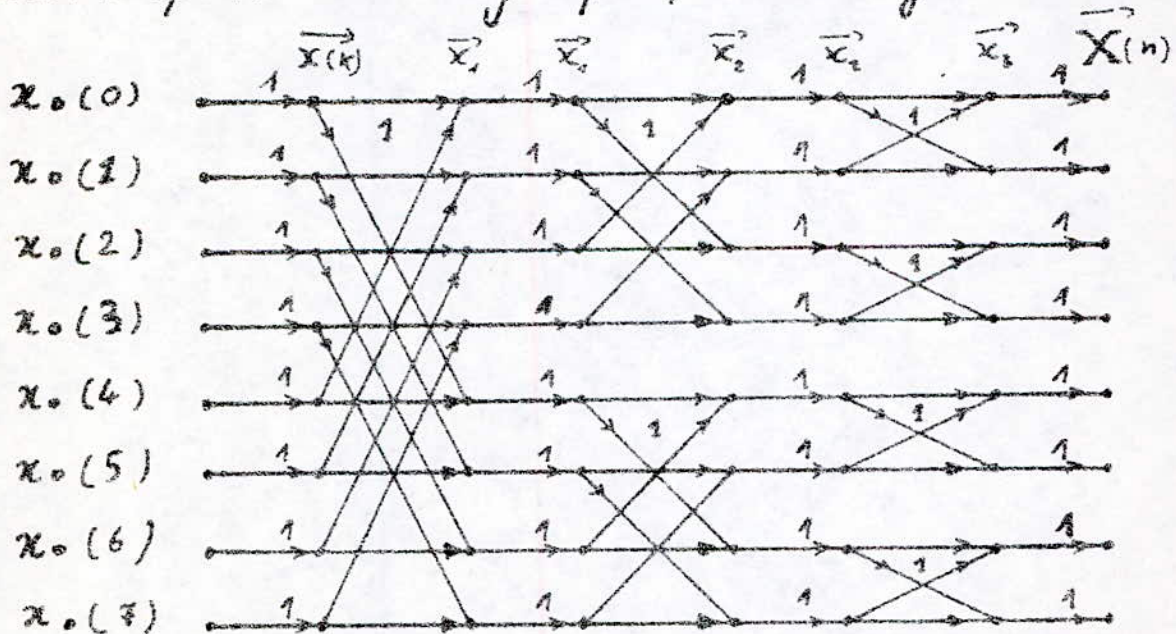 x(k) x₁ x₁ x₂ x₂ x₃ X(n)
x₀(0) 1 1 1 1 1 1 1
x₀(1) 1 1 1 1
x₀(2) 1 1 1 1 1
x₀(3) 1 1 1 1
x₀(4) 1 1 1 1 1 1
x₀(5) 1 1 1 1
x₀(6) 1 1 1 1 1
x₀(7) 1 1 1 1